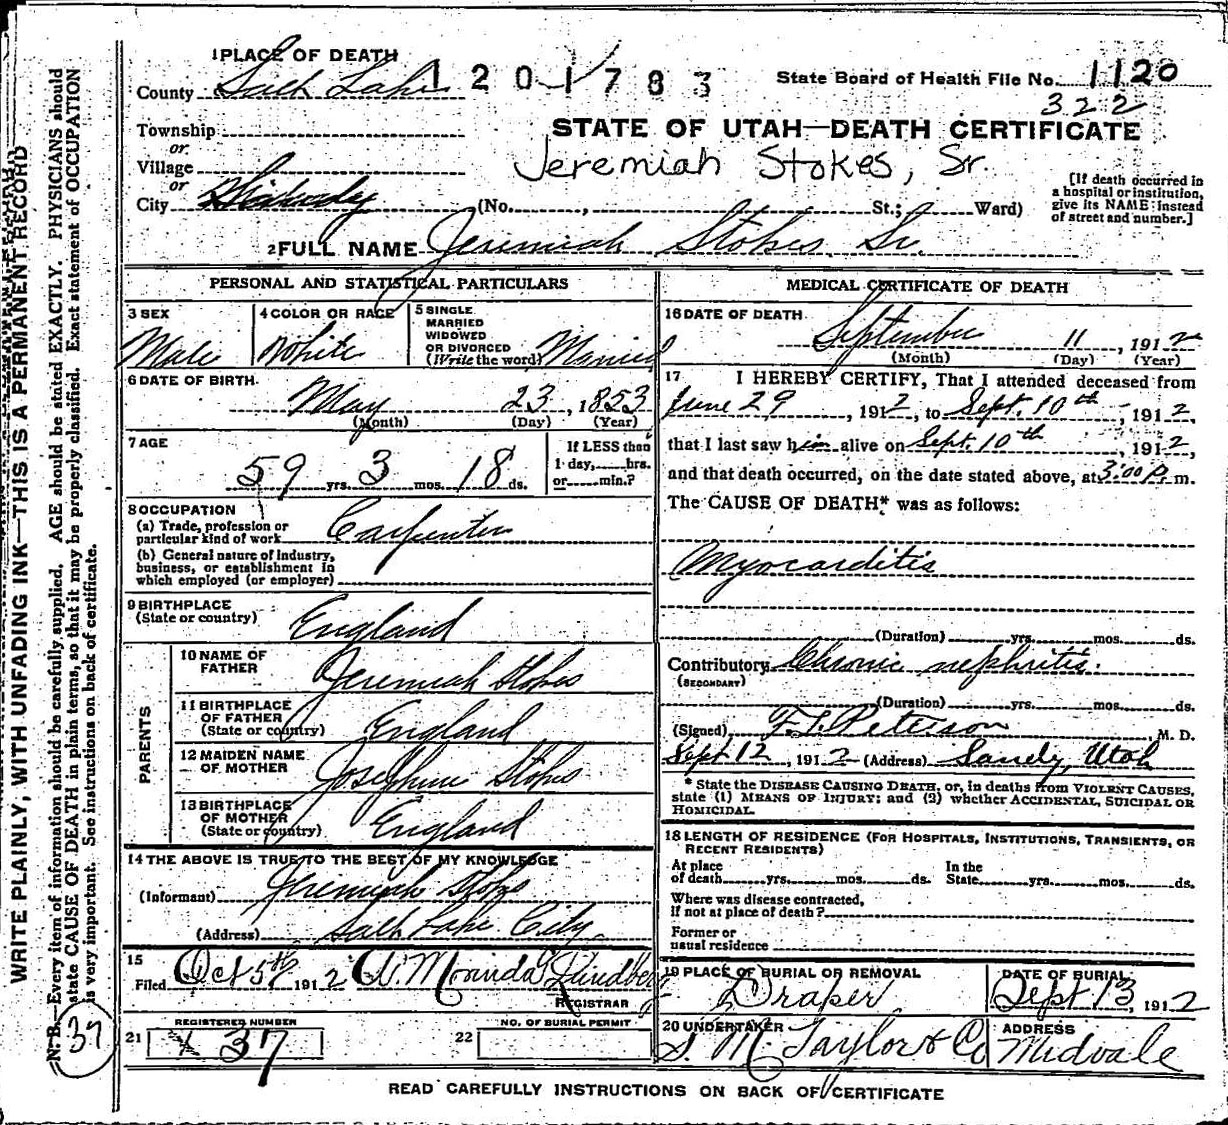 1 PLACE OF DEATH
1201783
State Board of Health File No. 1120
County Salt Lake
322
Township
or
STATE OF UTAH—DEATH CERTIFICATE
Village
Jeremiah Stokes, Sr.
or
City
(No. , St.; Ward)
[If death occurred in
a hospital or institution,
give its NAME instead
of street and number.]
2 FULL NAME Jeremiah Stokes Sr.
PERSONAL AND STATISTICAL PARTICULARS
3 SEX
Male
4 COLOR OR RACE
White
5 SINGLE
MARRIED
WIDOWED
OR DIVORCED
(Write the word) Married
6 DATE OF BIRTH
May 23, 1853
(Month) (Day) (Year)
7 AGE
59 yrs. 3 mos. 18 ds.
If LESS than
1 day, hrs.
or min.?
8 OCCUPATION
(a) Trade, profession or
particular kind of work Carpenter
(b) General nature of Industry,
business, or establishment in
which employed (or employer)
9 BIRTHPLACE
(State or country) England
PARENTS
10 NAME OF
FATHER Jeremiah Stokes
11 BIRTHPLACE
OF FATHER
(State or country) England
12 MAIDEN NAME
OF MOTHER Josephine Stokes
13 BIRTHPLACE
OF MOTHER
(State or country) England
14 THE ABOVE IS TRUE TO THE BEST OF MY KNOWLEDGE
(Informant) Jeremiah Stokes
(Address) Salt Lake City
15
Filed Oct 5th 1912
REGISTRAR
21 REGISTERED NUMBER
37
22 NO. OF BURIAL PERMIT
MEDICAL CERTIFICATE OF DEATH
16 DATE OF DEATH
September 11, 1912
(Month) (Day) (Year)
17 I HEREBY CERTIFY, That I attended deceased from
June 29, 1912, to Sept. 10th, 1912,
that I last saw him alive on Sept. 10th, 1912,
and that death occurred, on the date stated above, at 3:00 P. m.
The CAUSE OF DEATH* was as follows:
Myocarditis
(Duration) yrs. mos. ds.
Contributory Chronic nephritis.
(SECONDARY)
(Duration) yrs. mos. ds.
(Signed) F. L. Peterson, M. D.
Sept 12, 1912 (Address) Sandy, Utah
* State the DISEASE CAUSING DEATH, or, in deaths from VIOLENT CAUSES,
state (1) MEANS OF INJURY; and (2) whether ACCIDENTAL, SUICIDAL OR
HOMICIDAL.
18 LENGTH OF RESIDENCE (FOR HOSPITALS, INSTITUTIONS, TRANSIENTS, OR
RECENT RESIDENTS)
At place
of death yrs. mos. ds.
In the
State yrs. mos. ds.
Where was disease contracted,
if not at place of death?
Former or
usual residence
19 PLACE OF BURIAL OR REMOVAL
Draper
DATE OF BURIAL
Sept 13, 1912
20 UNDERTAKER
S. M. Taylor & Co
ADDRESS
Midvale
READ CAREFULLY INSTRUCTIONS ON BACK OF CERTIFICATE
WRITE PLAINLY, WITH UNFADING INK—THIS IS A PERMANENT RECORD
N. B.—Every item of information should be carefully supplied. AGE should be stated EXACTLY. PHYSICIANS should
state CAUSE OF DEATH in plain terms, so that it may be properly classified. Exact statement of OCCUPATION
is very important. See instructions on back of certificate.
37